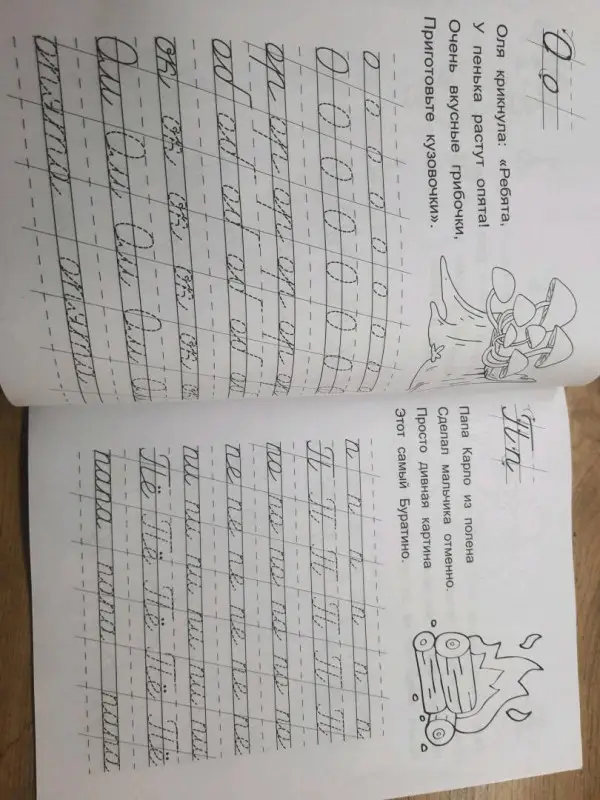 О о
Оля крикнула: «Ребята,
У пенька растут опята!
Очень вкусные грибочки,
Приготовьте кузовочки».
о о о о о о о
О О О О О О
ор ор ор ор
об об об об
опята опята
П п
Папа Карло из полена
Сделал мальчика отменно.
Просто дивная картина
Этот самый Буратино.
п п п п п п
П П П П П П
пе пе пе пе пе пе
пи пи пи пи пи пи
Пё Пё Пё Пё Пё
папа папа папа